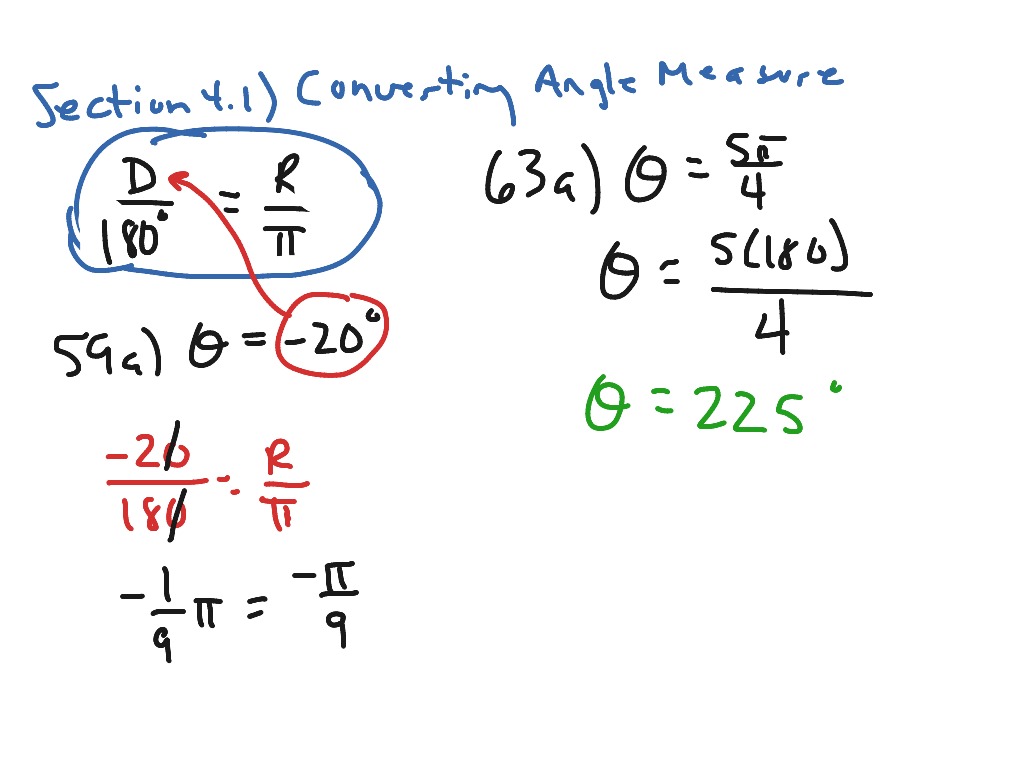 Section 4.1) Converting Angle Measure
D/180° = R/π
59a) θ = -20°
-20/180 = R/π
-1/9 π = -π/9
63a) θ = 5π/4
θ = 5(180)/4
θ = 225°